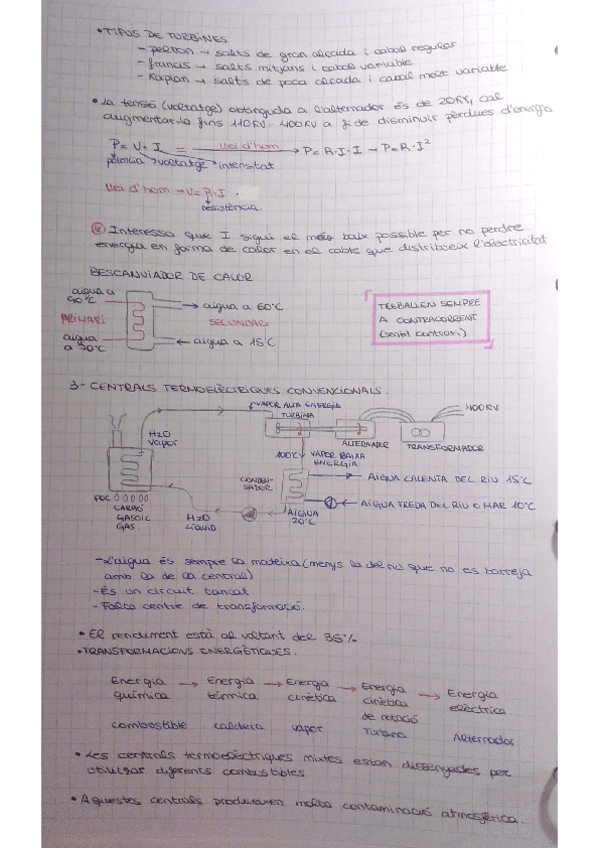 • TIPOS DE TURBINES
- pelton → salts de gran alçada i cabal regular
- francis → salts mitjans i cabal variable
- Kaplan → salts de poca alçada i cabal molt variable
• La tensió (voltatge) obtinguda a l'alternador és de 20KV, cal
augmentar-la fins 110KV - 400KV a fi de disminuir pèrdues d'energia
P = V · I = llei d'hom → P = R·I·I → P = R·I²
potència voltatge intensitat
llei d'hom → V = R·I
resistència.
Interessa que I sigui el més baix possible per no perdre
energia en forma de calor en el cable que distribueix l'electricitat
BESCANVIADOR DE CALOR
aigua a
90°C
aigua a 60°C
PRIMARI
SECUNDARI
aigua
a 70°C
aigua a 15°C
TREBALLEN SEMPRE
A CONTRACORRENT
(sentit contrari)
3- CENTRALS TERMOELÈCTRIQUES CONVENCIONALS.
VAPOR ALTA ENERGIA
TURBINA
400KV
H2O
vapor
ALTERNADOR
TRANSFORMADOR
100°C
VAPOR BAIXA
ENERGIA
CONDEN-
SADOR
AIGUA CALENTA DEL RIU 15°C
AIGUA FREDA DEL RIU O MAR 10°C
FOC
CARBÓ
GASOIL
GAS
H2O
LÍQUID
AIGUA
20°C
- L'aigua és sempre la mateixa (menys la del riu que no es barreja
amb la de la central)
- És un circuit tancat
- Falta centre de transformació.
• El rendiment està al voltant del 35%
• TRANSFORMACIONS ENERGÈTIQUES.
Energia → Energia → Energia → Energia → Energia
química tèrmica cinètica cinètica elèctrica
de rotació
combustible caldera vapor Turbina Alternador
• Les centrals termoelèctriques mixtes estan dissenyades per
utilitzar diferents combustibles
• Aquestes centrals produeixen molta contaminació atmosfèrica.